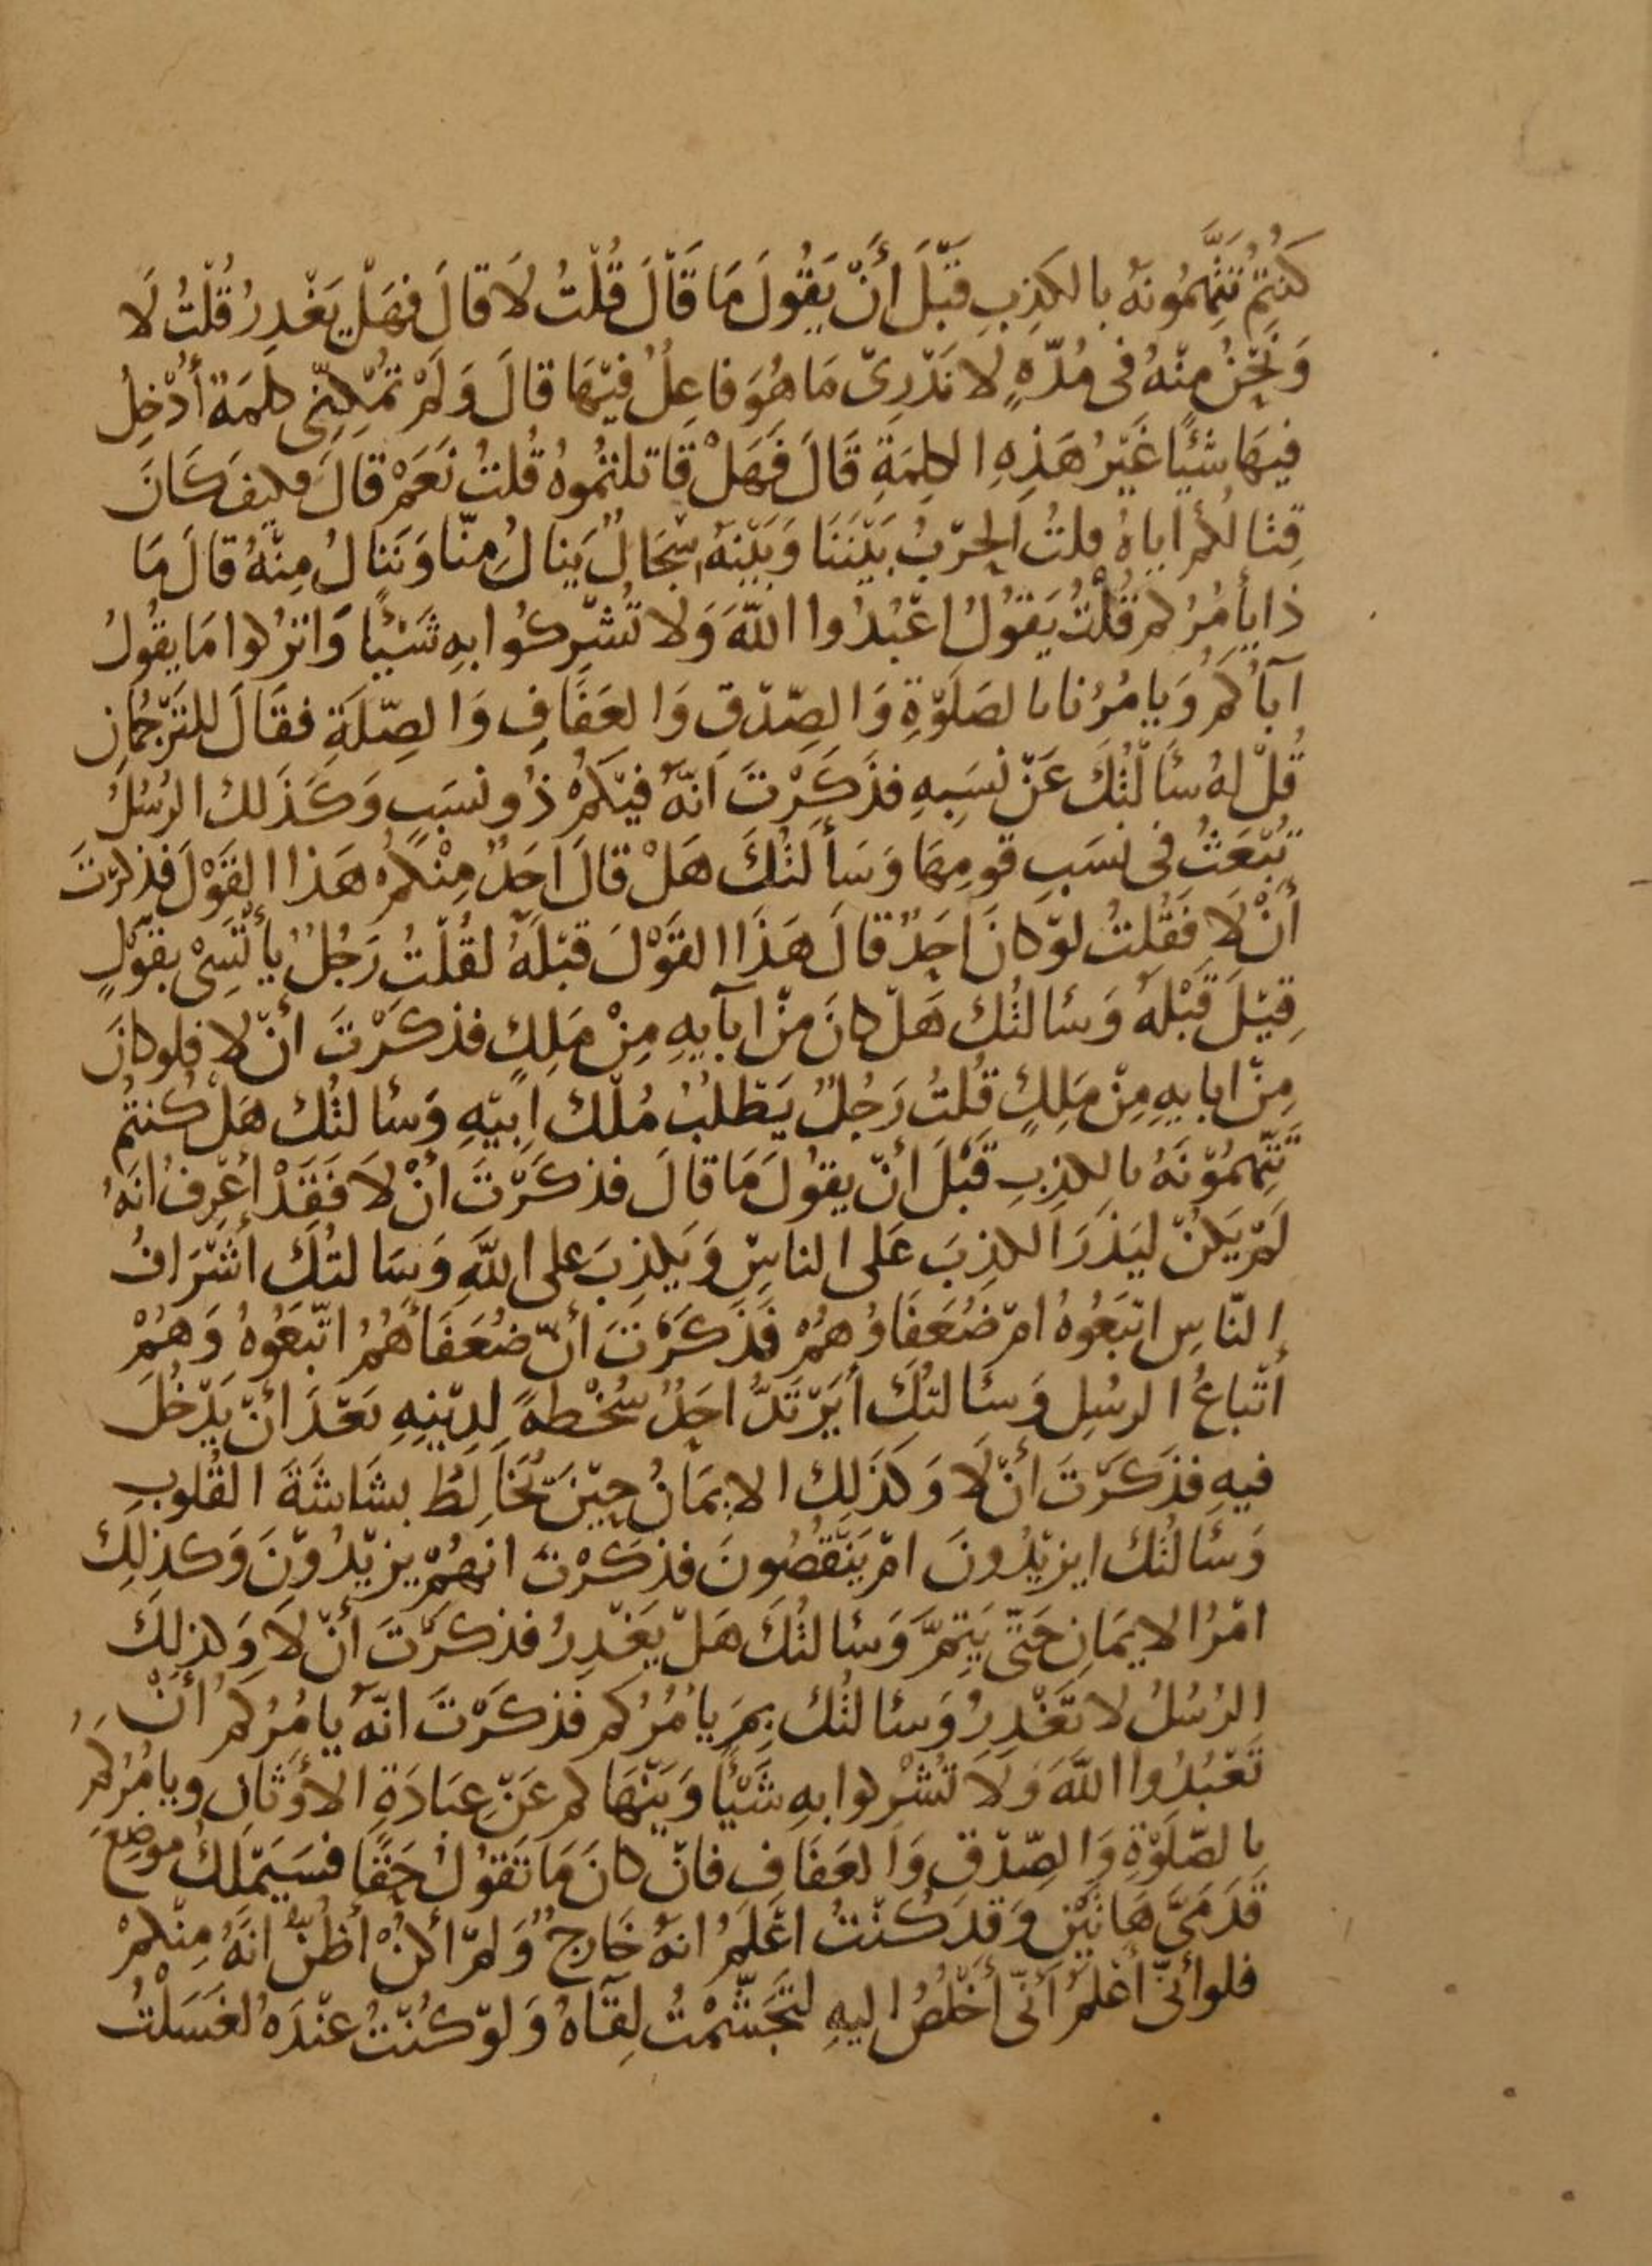 كُنْتُمْ تَتَّهِمُونَهُ بالكَذِبِ قَبْلَ أَنْ يَقُولَ مَا قَالَ قُلْتُ لَا قالَ فهَلْ يَغْدِرُ قُلْتُ لَا
وَنَحْنُ مِنْهُ فى مُدَّةٍ لا نَدْرِىْ مَا هُوَ فاعِلٌ فِيْهَا قالَ وَلَمْ تُمْكِنِّى كلمَةٌ أُدْخِلُ
فيهَا شَيْئًا غَيْرُ هَذِهِ الكلِمَةِ قَالَ فَهَلْ قاتلتُمُوهُ قُلتُ نَعَمْ قالَ فكيفَ كَانَ
قِتالُكُم اياهُ قلتُ الحَرْبُ بَيْنَنَا وَبَيْنَهُ سِجَالٌ يَنالُ مِنّا وَنَنالُ مِنْهُ قالَ مَا
ذا يأمُرُكم قُلْتُ يَقُولُ اعْبُدُوا اللّهَ وَلا تُشْرِكُوا بِهِ شَيْئًا وَاترُكوا مَا يقُولُ
آباُكُم وَيامُرُنا بالصَلَوٰةِ وَالصِّدْقِ وَالعَفَافِ وَالصِّلَةِ فقَالَ للتَرْجُمَانِ
قُلْ لهُ سئالْتُكَ عَنْ نسَبِهِ فذَكَرْتَ انّهُ فيْكُمْ ذُو نسَبٍ وَكَذَلك الرسُلُ
تُبْعَثُ فى نسَبِ قومِهَا وَسَأَلتُكَ هَلْ قالَ احَدٌ مِنْكُمْ هَذا القَوْلَ فذكرْتَ
أَنْ لَا فَقُلتُ لوْ كانَ احَدٌ قالَ هَذَا القَوْلَ قبْلَهُ لقُلْتُ رَجُلٌ يأْتَسِىْ بقَوْلٍ
قِيْلَ قَبْلَهُ وَسئالتُكَ هَلْ كانَ مِنْ ابآيهِ مِنْ مَلِكٍ فذكَرْتَ أنْ لا فلو كانَ
مِنْ ابايِهِ مِنْ مَلِكٍ قُلتُ رَجُلٌ يَطْلُبُ مُلْكَ ابِيْهِ وَسئالتُكَ هَلْ كُنتُمْ
تَتَّهِمُوْنَهُ بالكذِبِ قَبْلَ أنْ يقُولَ مَا قالَ فذكَرْتَ انْ لَا فَقَدْ أعْرِفُ انَهُ
لَمْ يَكُنْ ليَذَرَ الكذِبَ عَلى الناسِ وَيَكذِبَ على اللّهِ وَسَالتُكَ أشْرَافُ
النّاسِ اتبَعُوهُ امْ ضُعَفَاوُهُمْ فَذكَرْتَ أنّ ضُعَفَأَهُمُ اتّبَعُوهُ وَهُمْ
أتْباعُ الرسُلِ وَسئالتُكَ أيَرْتَدُّ احَدٌ سُخْطةً لدِيْنِهِ بَعْدَ انْ يَدْخُلَ
فيهِ فذَكَرْتَ أنْ لَا وَكذَلِكَ الايمَانُ حِيْنَ تُخَالِطُ بشَاشَةَ القُلُوبِ
وَسئالتُكَ ايزيْدُونَ امْ يَنْقُصُونَ فذكَرْتَ انهُمْ يزيْدُوْنَ وَكذلِكَ
امْرُ الايمَانِ حَتّى يَتِمَّ وَسئالتُكَ هَلْ يَغْدِرُ فذكَرْتَ أنْ لَا وَكذلِكَ
الرُسُلُ لا تَغْدِرُ وَسئالتُكَ بِمَ يامُرُكم فذكَرْتَ انّهُ يامُرُكُم أنْ
تَعْبُدُوا اللّهَ وَلا تُشْركوا بهِ شَيْأً وَيَنْهَاكم عَنْ عِبَادَةِ الاوْثَانِ ويامُرُكم
بالصّلَوٰةِ وَالصِّدْقِ وَالعَفَافِ فانْ كانَ مَا تَقُولُ حَقًّا فسَيَمْلكُ موضِعَ
قَدَمَىَّ هَاتَيْنِ وَقَد كُنْتُ اعْلَمُ انهُ خَارجٌ وَلمْ أكُنْ أظُنُّ انَّهُ مِنْكمْ
فلو أنّىْ أعْلمُ أنّى أخْلُصُ اليهِ لتَجَشّمْتُ لِقآهُ وَلوْ كُنْتُ عنْدَهُ لغَسَلْتُ